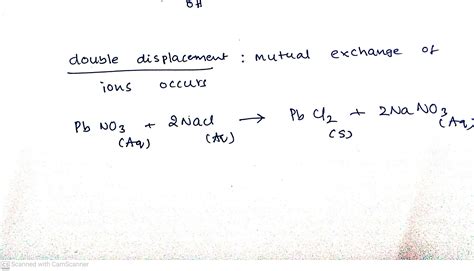 BH
double displacement : mutual exchange of
ions occurs
Pb NO3 + 2NaCl → Pb Cl2 + 2Na NO3
(Aq) (Aq) (S) (Aq)
Scanned with CamScanner